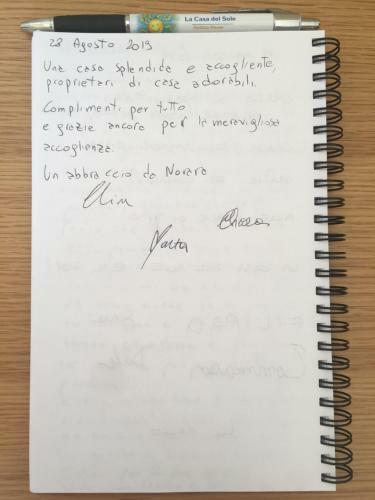 La Casa del Sole
28 Agosto 2019
Una casa splendida e accogliente,
proprietari di casa adorabili.
Complimenti per tutto
e grazie ancora per la meravigliosa
accoglienza.
Un abbraccio da Novara
Marta